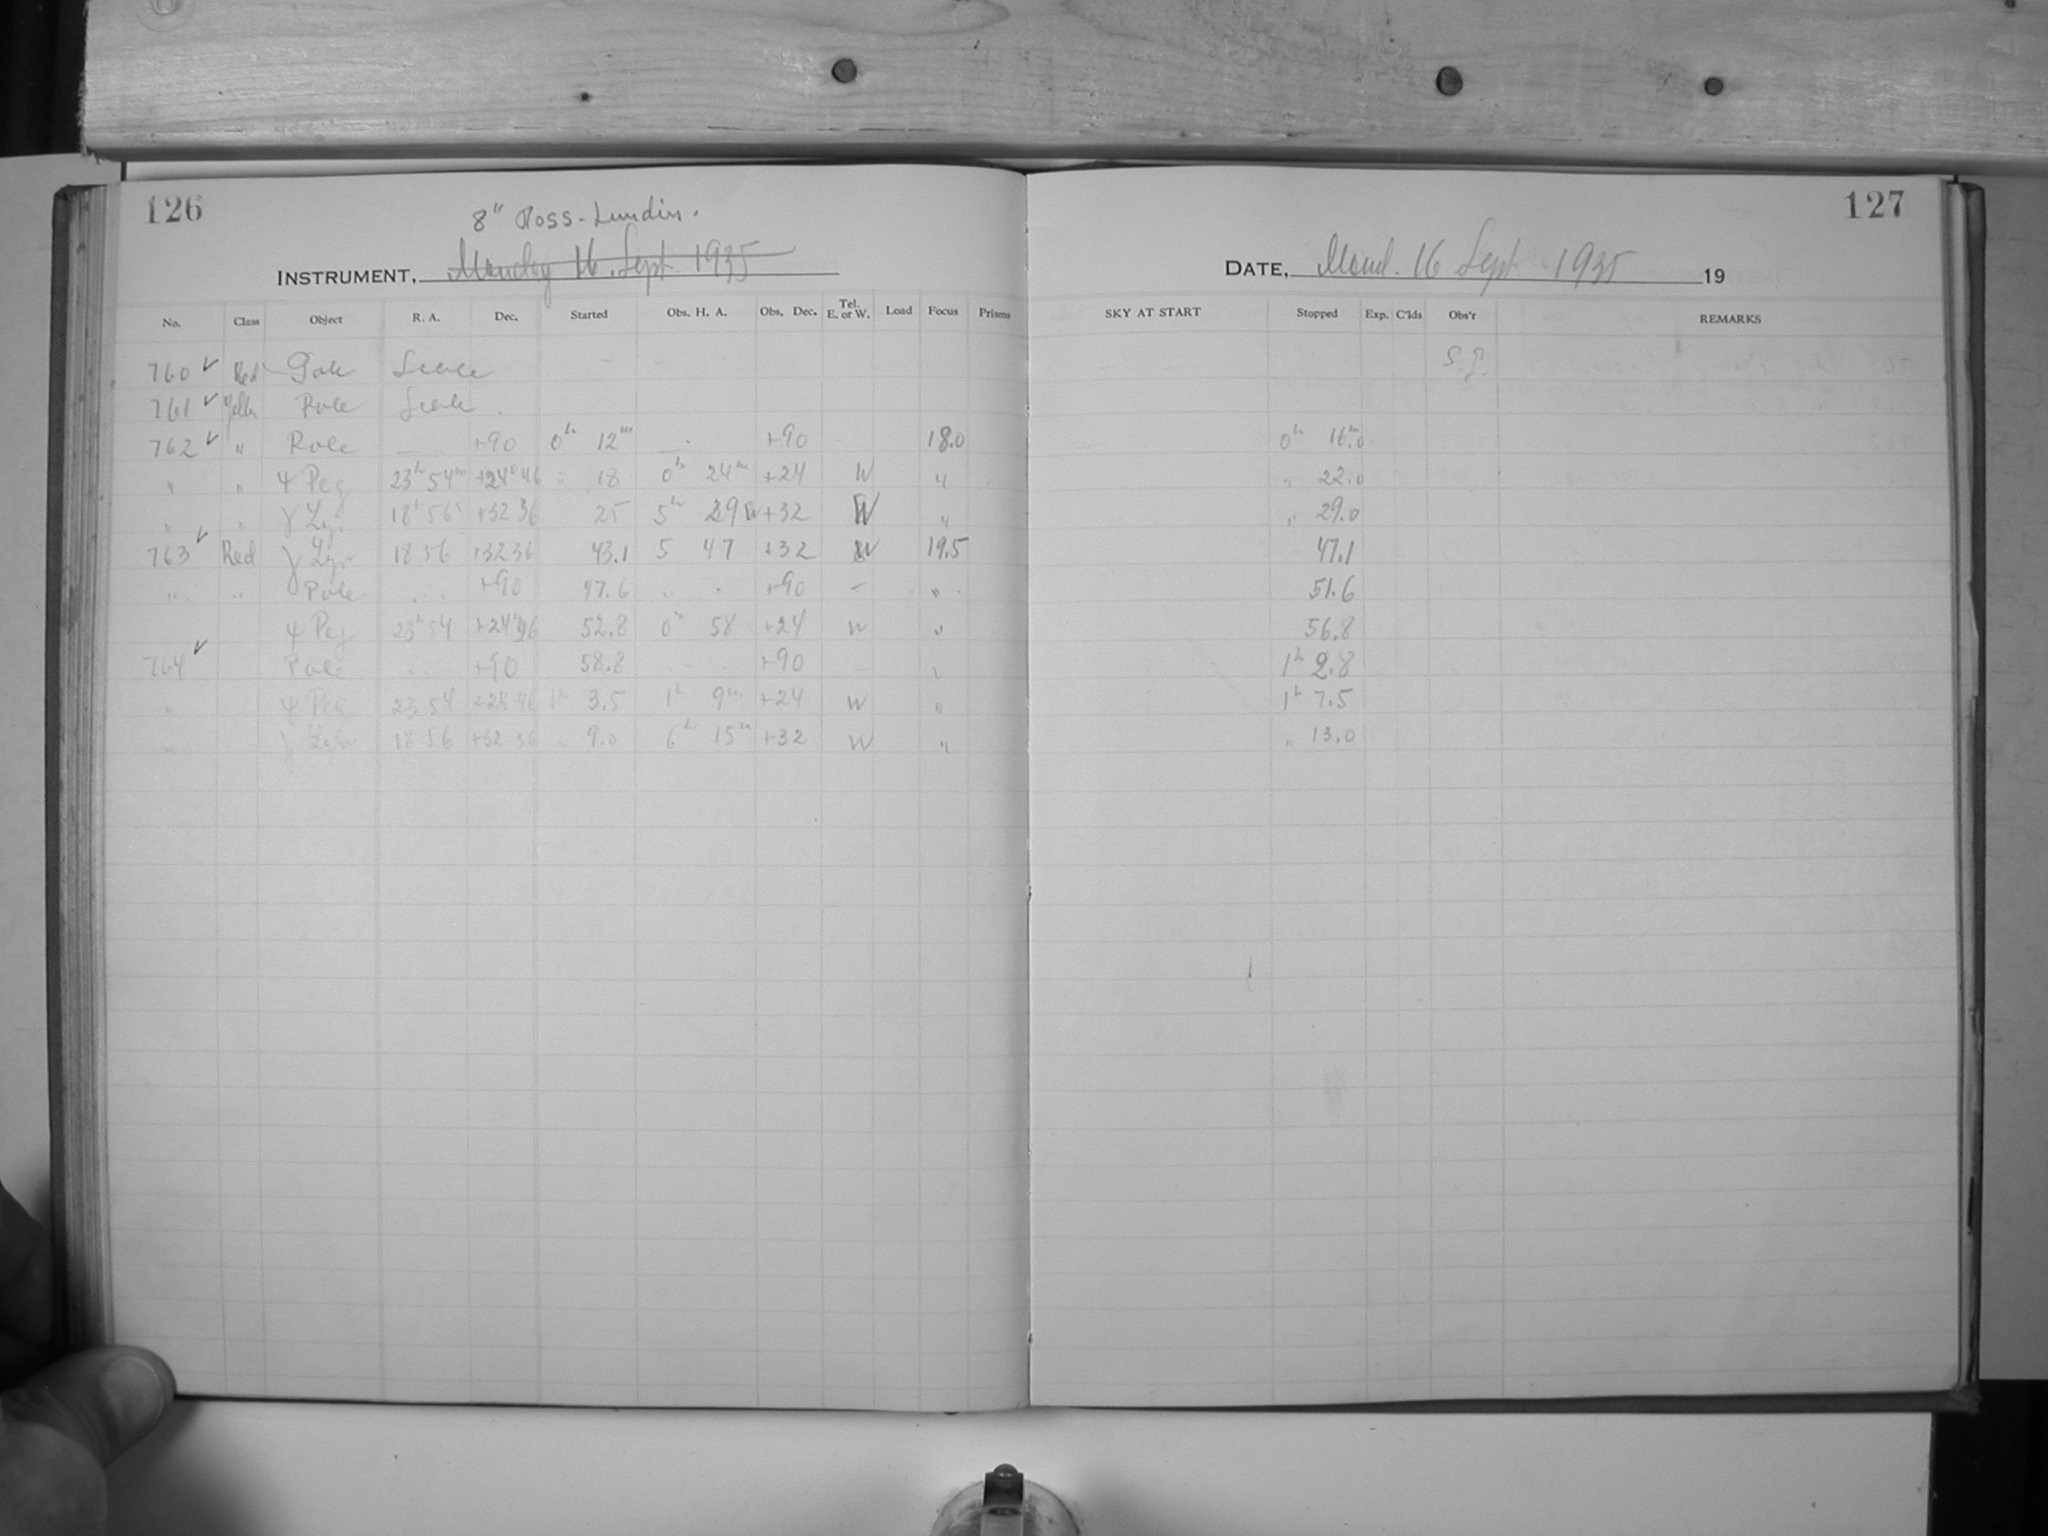 126
8" Ross-Lundin.
INSTRUMENT, Monday 16. Sept 1935
No. Class Object R. A. Dec. Started Obs. H. A. Obs. Dec. Tel. E. or W. Load Focus Prisms
760 ✓ Red Pole Scale — —
761 ✓ Yellow Pole Scale
762 ✓ " Pole — +90 0h 12m — +90 18.0
" " ψ Peg 23h 54m +24° 46 " 18 0h 24m +24 W "
" " γ Lyr 18h 56m +32 36 25 5h 29 +32 W "
763 ✓ Red γ Lyr 18 56 +32 36 43.1 5 47 +32 W 19.5
" " Pole +90 47.6 " +90 — "
ψ Peg 23h 54 +24° 46 52.8 0h 58 +24 W "
764 ✓ Pole +90 58.8 +90 "
" ψ Peg 23 54 +24 46 1h 3.5 1h 9m +24 W "
" γ Lyr 18 56 +32 36 " 9.0 6h 15m +32 W "
127
DATE, Mond. 16 Sept 1935 19
SKY AT START Stopped Exp. C'lds Obs'r REMARKS
S.G.
0h 16m.0
" 22.0
" 29.0
47.1
51.6
56.8
1h 2.8
1h 7.5
" 13.0